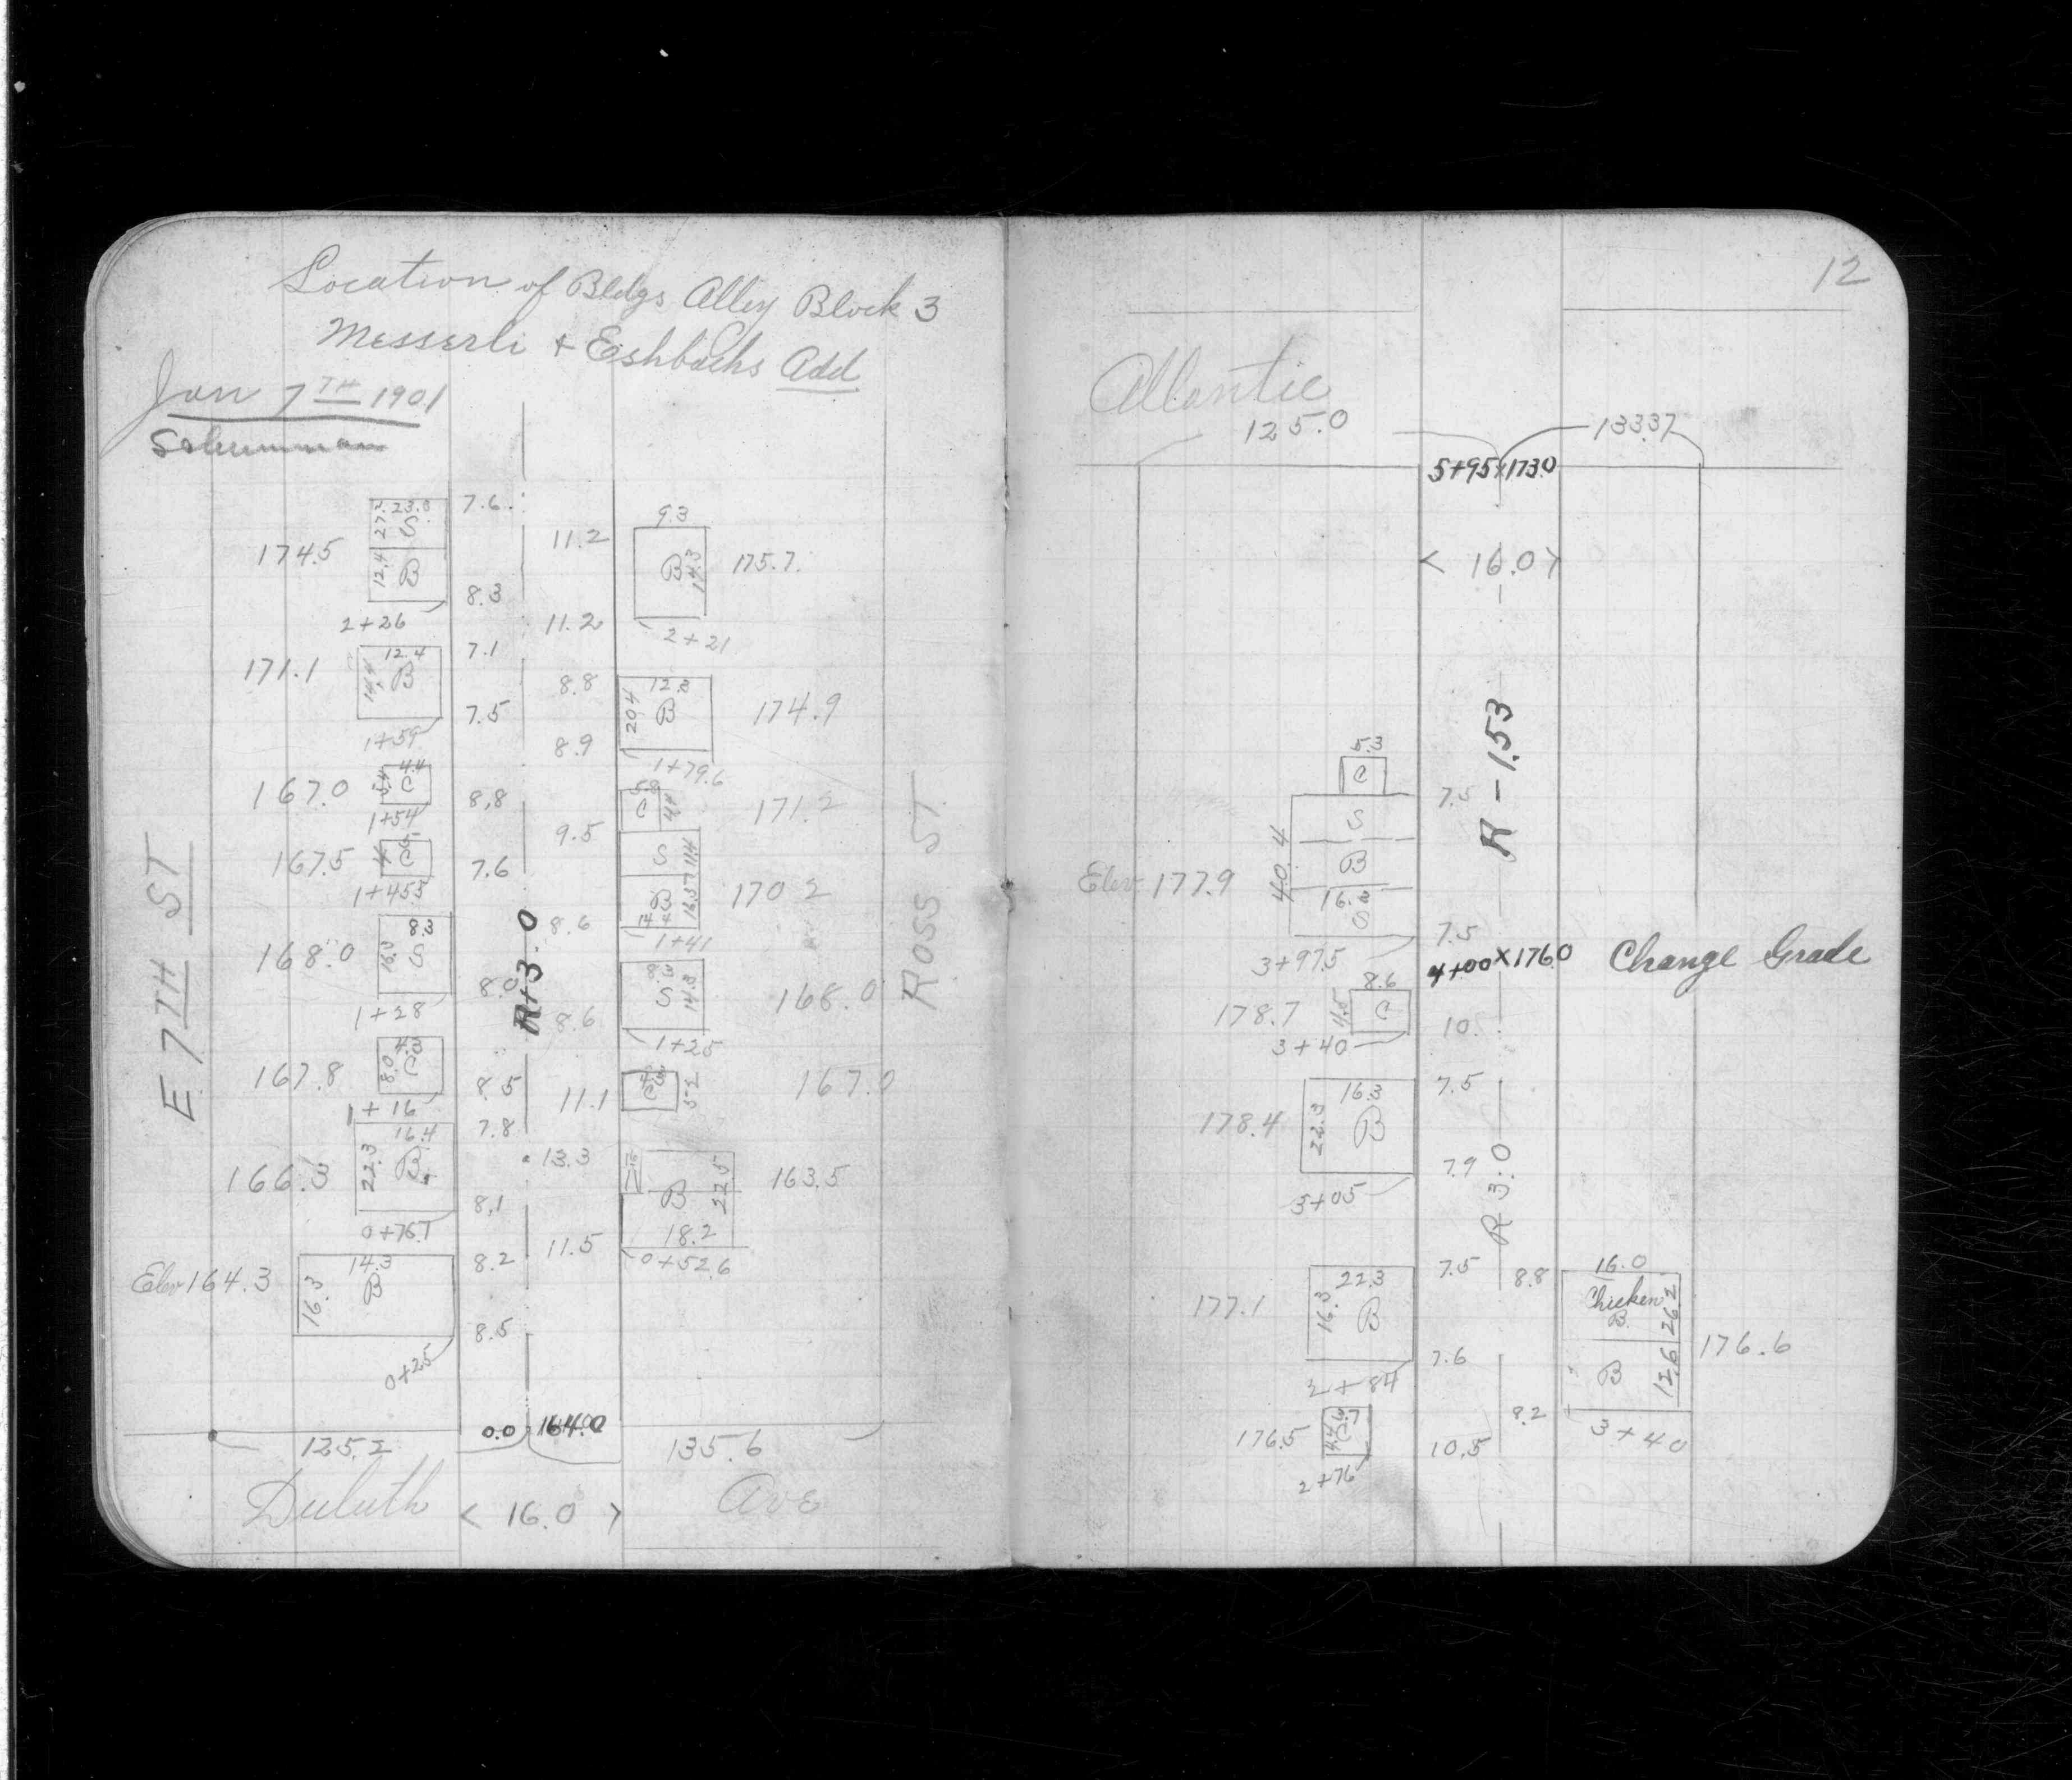 Location of Bldgs Alley Block 3
Messerli & Eshbachs Add
Jan 7TH 1901
E 7TH ST
27.2 23.8 7.6
S
174.5
12.4 B
8.3
2+26
11.2
9.3
B 14.3
175.7
11.2
2+21
12.4 7.1
171.1
B
7.5
1+59
8.8
12.3
20.4 B
174.9
8.9
1+79.6
4.4
167.0
C
8.8
1+54
C 4.4
171.2
9.5
167.5
C
7.6
1+45.5
S 11.4
B 16.3
170.2
8.6
1+41
R+3.0
8.3
168.0
16.3 S
8.0
1+28
8.3
S 14.3
168.0
8.6
1+25
4.3
167.8
8.0 C
8.5
1+16
11.1
C 5.2
167.0
7.8
16.4
166.3
22.3 B
8.1
0+76.1
13.3
B 22.5
163.5
18.2
11.5
0+52.6
14.3 8.2
Elev 164.3
16.3 B
8.5
0+25
0.0 164.0
125.2 135.6
Duluth < 16.0 > Ave
ROSS ST.
12
Atlantic
125.0 133.37
5+95 x 173.0
< 16.0 >
R - 1.53
5.3
C
7.5
S
40.4
B
Elev 177.9
16.3
S
7.5
3+97.5
4+00 x 176.0 Change Grade
8.6
178.7
C
10.
3+40
16.3 7.5
178.4
22.3 B
7.9
3+05
R 3.0
22.3 7.5
177.1
16.3 B
7.6
2+84
8.8
16.0
Chicken
B 26.2
B 12.6
176.6
9.2
3+40
176.5
10.5
2+76